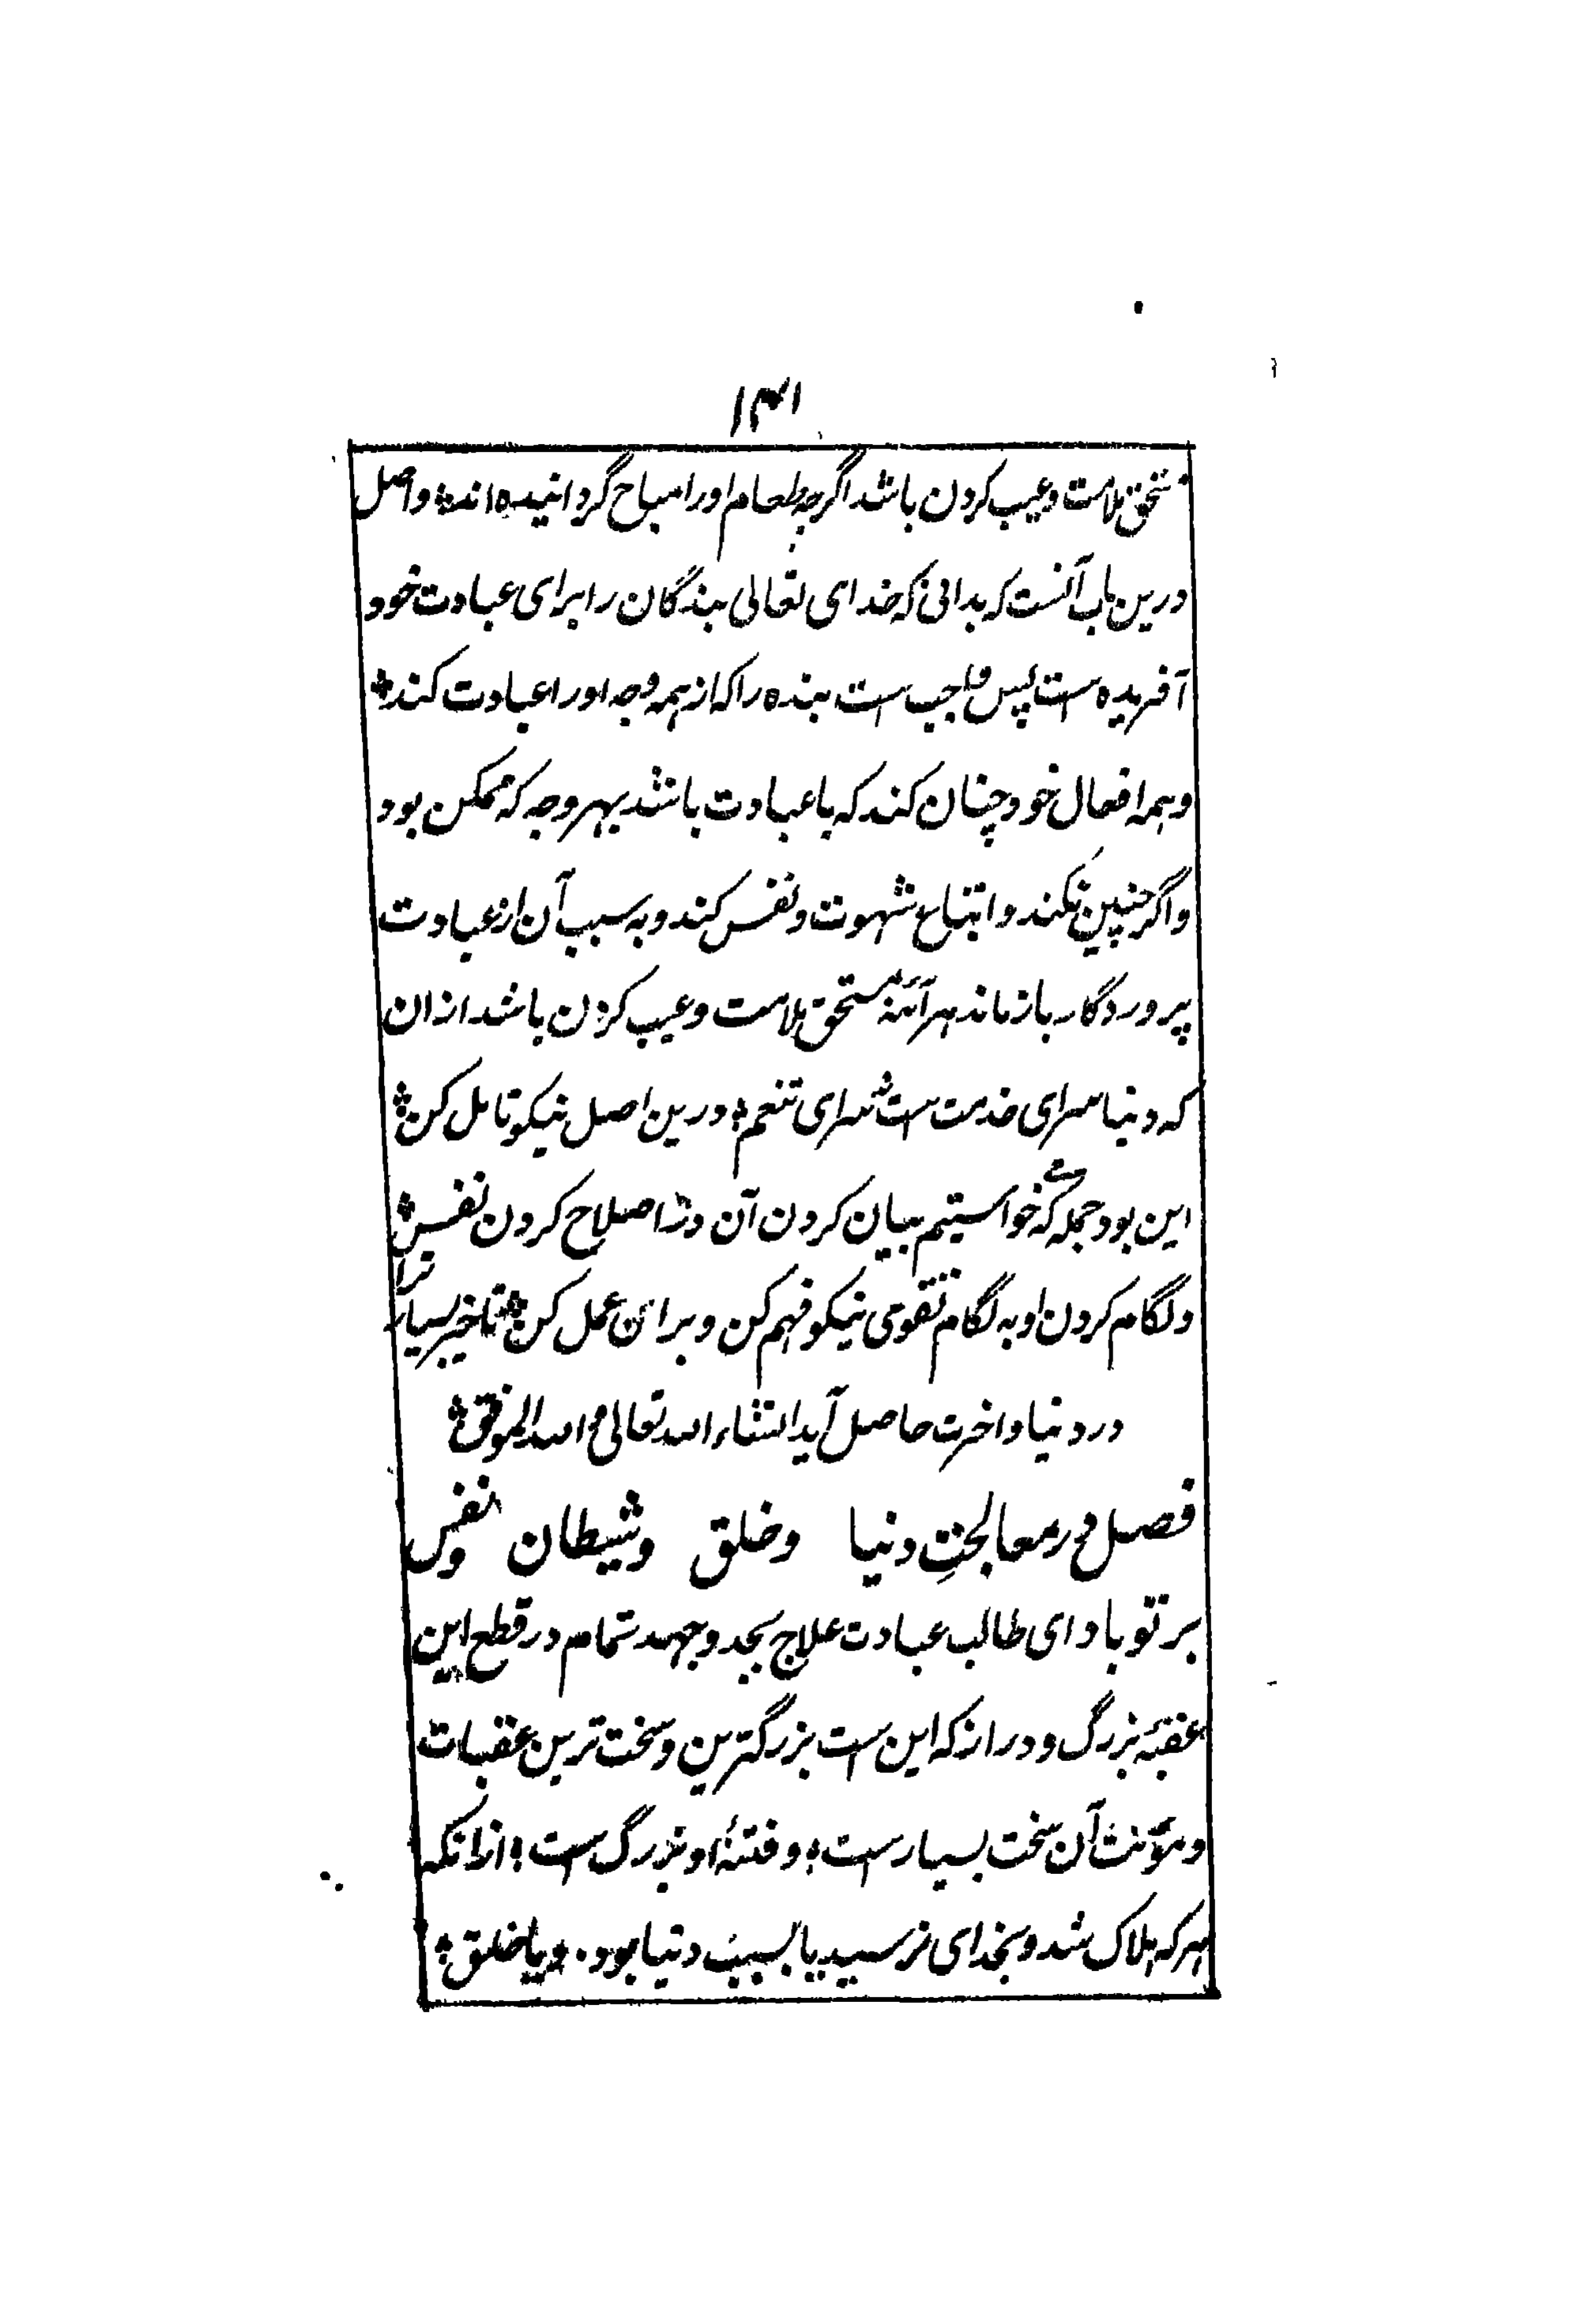 ۱۴۱
مستحق ملامت و عیب کردن باشد اگرچه طعام اورا مباح گردانیده اند؛ واصل
درین باب آنست که بدانی که خدای تعالی بندگان را برای عبادت خود
آفریده است پس واجب است بنده را که از همه وجه اورا عبادت کند؛
وهمه افعال خود چنان کند که با عبادت باشد بهر وجه که ممکن بود
واگر چنین نکند واتباع شهوت ونفس کند وبه سبب آن از عبادت
پروردگار باز ماند هر آئنه مستحق ملامت وعیب کردن باشد ازان
که دنیا سرای خدمت است نه سرای تنعم؛ درین اصل نیکو تامل کن؛
این بود جمله که خواستیم بیان کردن آن در اصلاح کردن نفس؛
ولگام کردن او به لگام تقوی نیکو فهم کن وبراین عمل کن؛ تاخیر بسیار ترا
در دنیا واخرت حاصل آید انشاء الله تعالی والله الموفق؛
فصل در معالجتِ دنیا وخلق وشیطان ونفس
بر تو باد ای طالب عبادت علاج بجد وجهد تمام در قطع این
عقبۀ بزرگ ودراز که این است بزرگترین وسخت ترین عقبات
ومؤنت آن سخت بسیار است؛ وفتنۀ او بزرگ است؛ ازانکه
هرکه هلاک شد وبخدای نرسید یا بسبب دنیا بود. ویا خلق؛